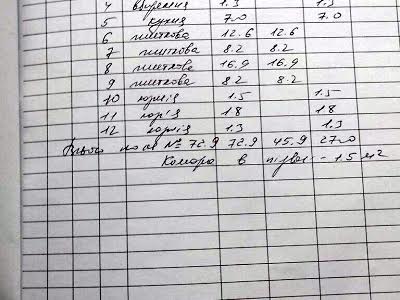 4 вбиральня 1.3 1.3
5 кухня 7.0 7.0
6 житлова 12.6 12.6
7 житлова 8.2 8.2
8 житлова 16.9 16.9
9 житлова 8.2 8.2
10 1.5 1.5
11 1.8 1.8
12 1.3 1.3
Всього по кв № 72.9 72.9 45.9 27.0
Комора в - 1.5 м2